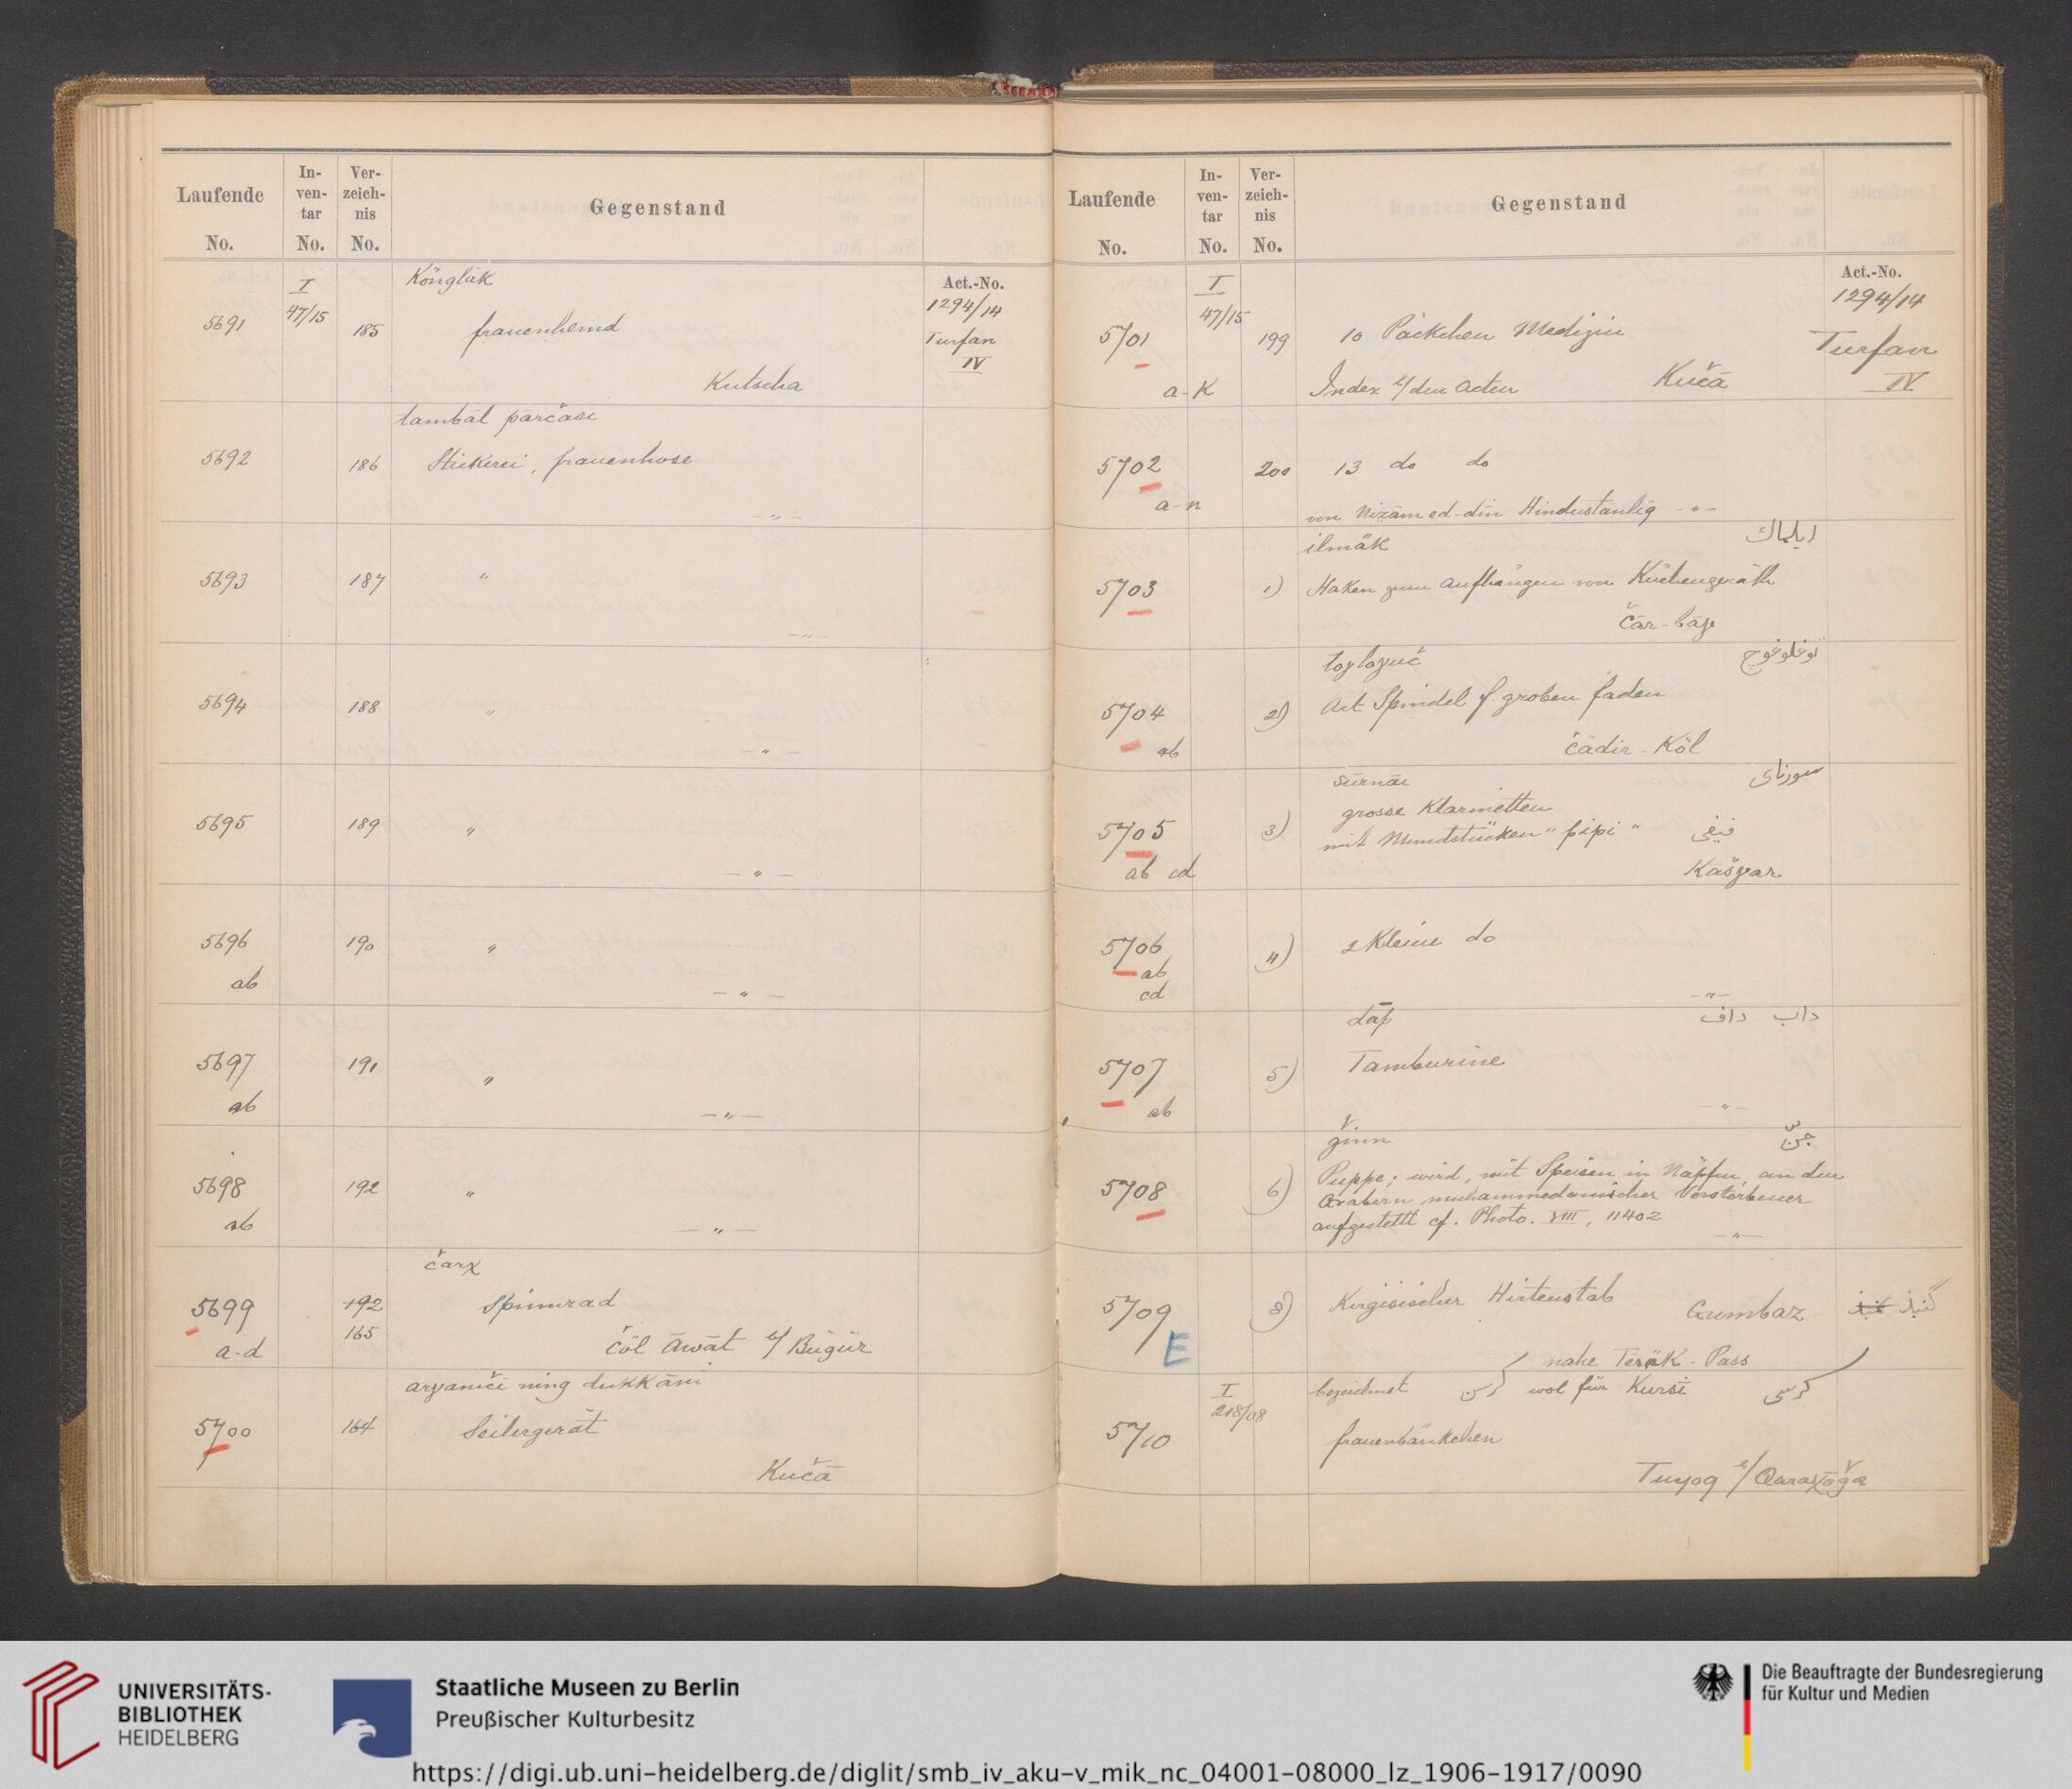 Laufende No.
In-ven-tar No.
Ver-zeich-nis No.
Gegenstand
Act.-No.
1294/14
Turfan
IV
I
47/15
Könglük
5691
185
frauenhemd
Kutscha
tambāl parčasi
5692
186
Stickerei, frauenhose
-〃-
5693
187
〃
-〃-
5694
188
〃
-〃-
5695
189
〃
-〃-
5696
ab
190
〃
-〃-
5697
ab
191
〃
-〃-
5698
ab
192
〃
-〃-
čarχ
5699
a-d
192
165
Spinnrad
čöl āwāt b/ Bügür
arγamči ning dukkāni
5700
164
Seilergerät
Kučā
Laufende No.
In-ven-tar No.
Ver-zeich-nis No.
Gegenstand
Act.-No.
1294/14
Turfan
IV
I
47/15
5701
199
10 Päckchen Medizin
a-k
Index b/ den Acten
Kučā
5702
200
13 do do
a-n
von Nizām ed-dīn Hindustanlig -〃-
ilmäk
ايلماك
5703
1)
Haken zum Aufhängen von Küchengeräth
Čār-bāγ
toγloγuč
توغلوغوچ
5704
ab
2)
Art Spindel f. groben faden
čādir-Köl
surnāi
سورناى
5705
ab cd
3)
grosse Klarinetten
mit Mundstücken "pipi"
فيفى
Kašγar
5706
ab
cd
4)
2 Kleine do
-〃-
dāp
داب داف
5707
ab
5)
Tamburine
-〃-
ǧinn
جنّ
5708
6)
Puppe; wird, mit Speisen in Näpfen, an den
Gräbern muhammedanischer Verstorbener
aufgestellt cf. Photo. VIII, 11402
-〃-
5709
E
8)
Kirgisischer Hirtenstab
Gumbaz
گنبذ
nahe Teräk-Pass
I
218/08
bezeichnet كرسن wol für Kursī كرسى
5710
frauenbänkchen
Tuyoq b/ Qaraχōǧa
UNIVERSITÄTS-
BIBLIOTHEK
HEIDELBERG
Staatliche Museen zu Berlin
Preußischer Kulturbesitz
Die Beauftragte der Bundesregierung
für Kultur und Medien
https://digi.ub.uni-heidelberg.de/diglit/smb_iv_aku-v_mik_nc_04001-08000_lz_1906-1917/0090